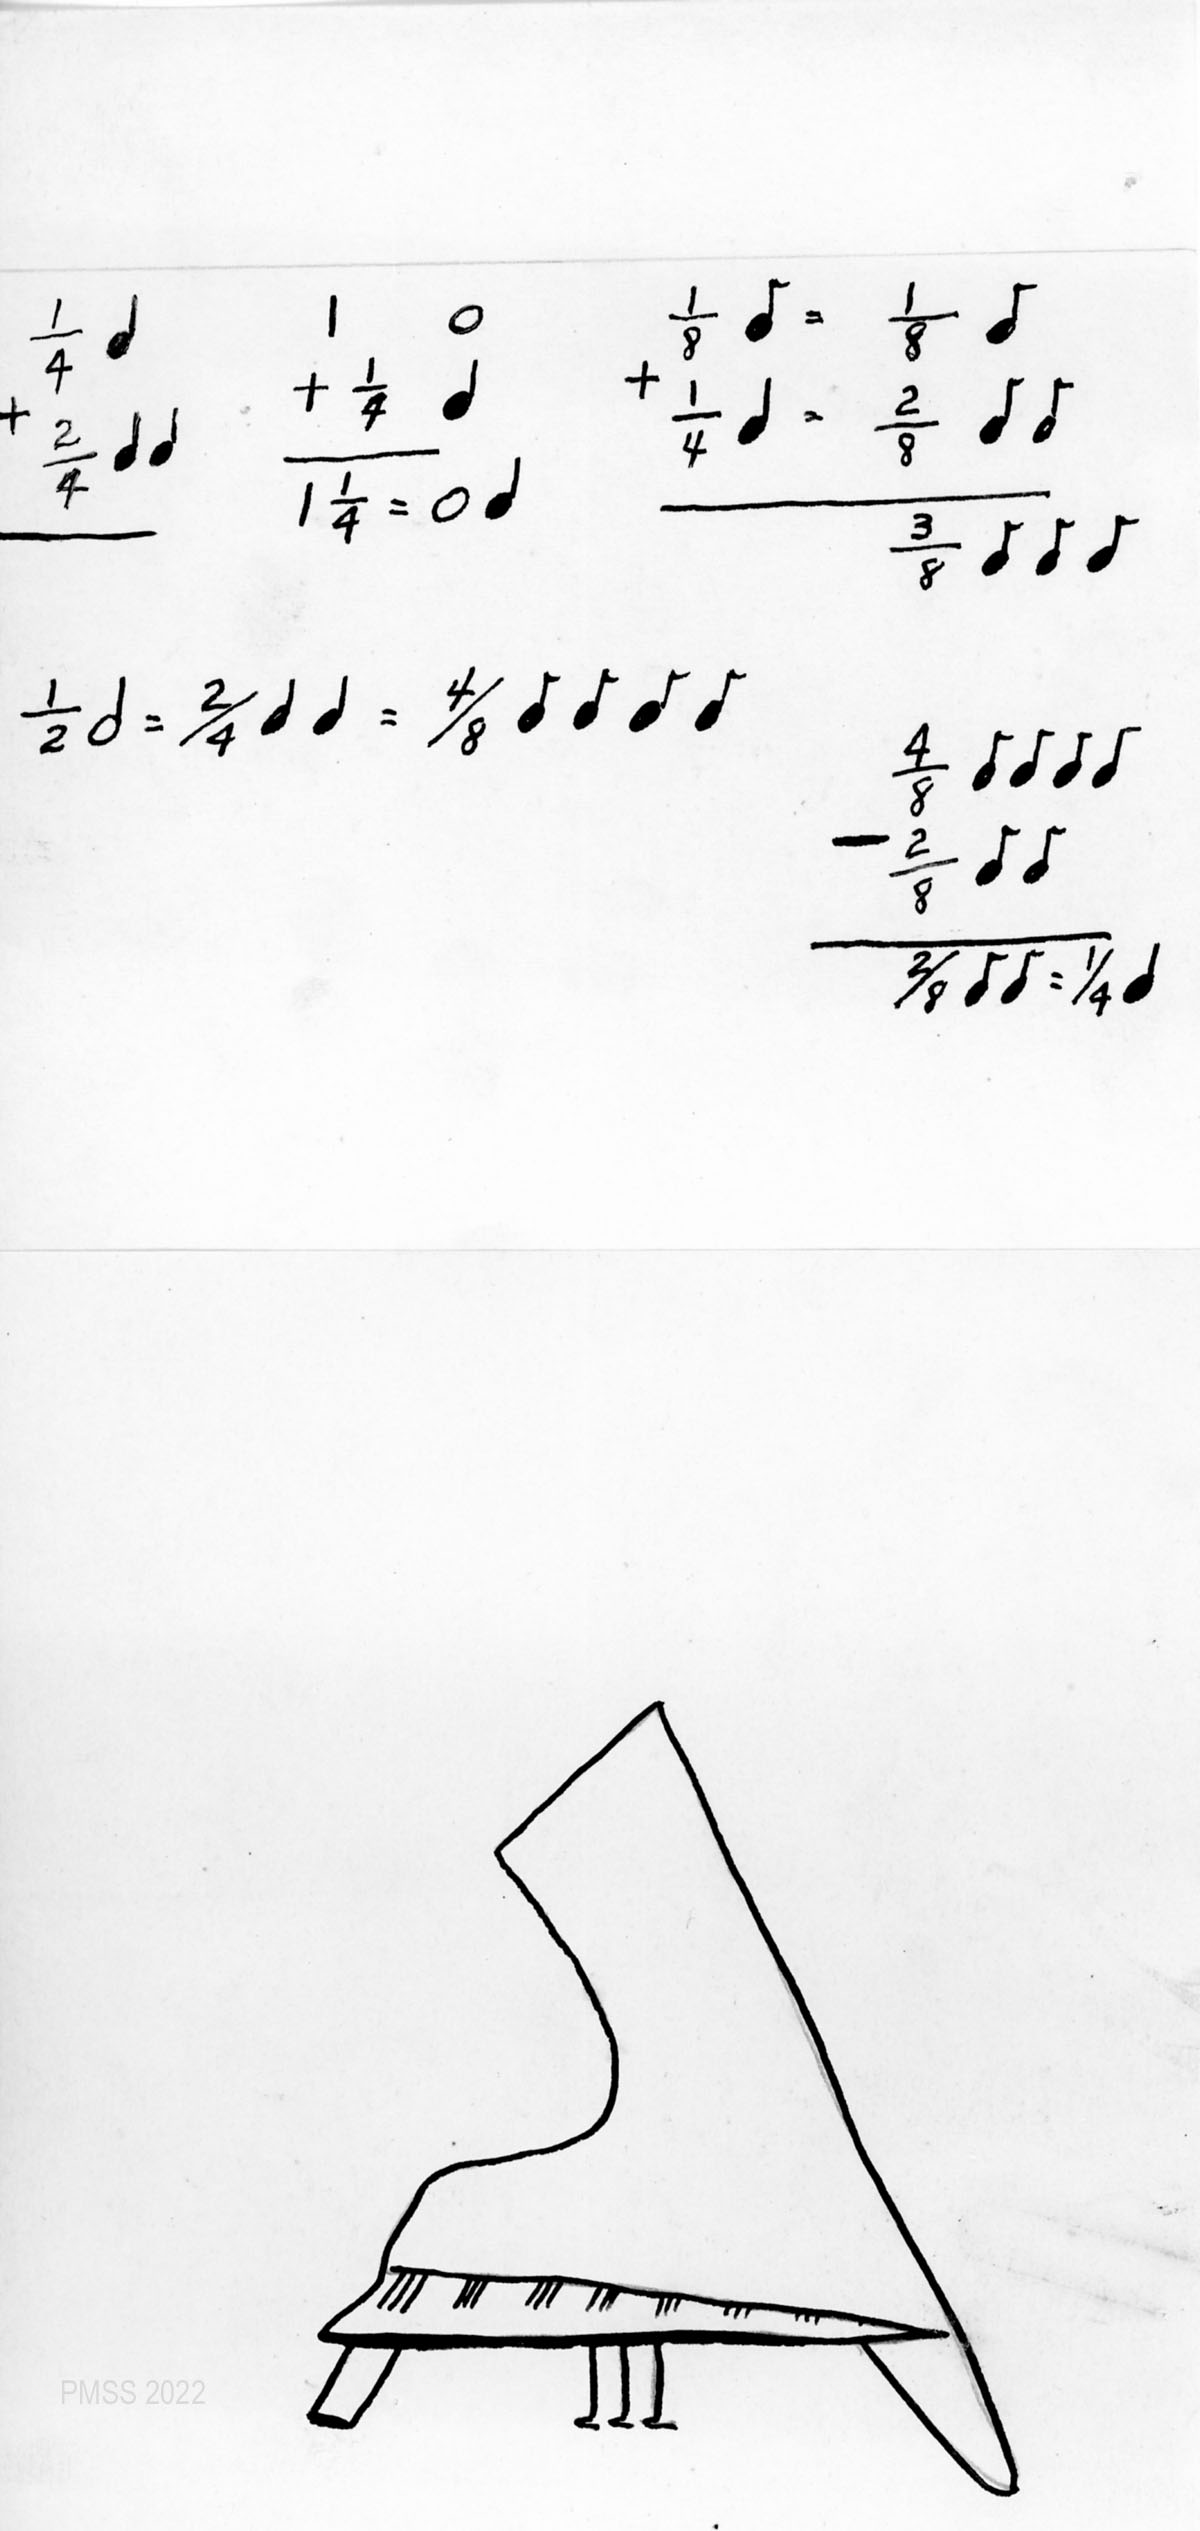 1/4 ♩
+ 2/4 ♩♩
1 𝅝
+ 1/4 ♩
1 1/4 = 𝅝 ♩
1/8 ♪ = 1/8 ♪
+ 1/4 ♩ = 2/8 ♪♪
3/8 ♪♪♪
1/2 𝅗𝅥 = 2/4 ♩♩ = 4/8 ♪♪♪♪
4/8 ♪♪♪♪
- 2/8 ♪♪
2/8 ♪♪ = 1/4 ♩
PMSS 2022